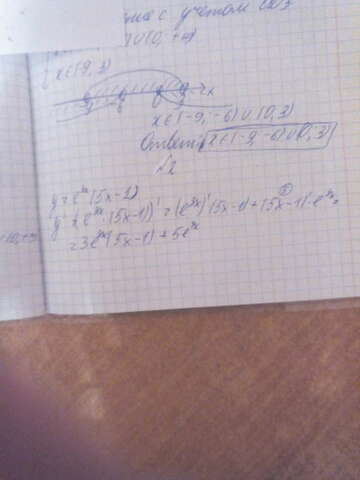 с учётом ОДЗ
∪(0, +∞)
{ x∈(-9, 3)
x
x∈(-9, -6)∪(0, 3)
Ответ: x∈(-9, -6)∪(0, 3)
√2
y = e³ˣ(5x-1)
y' = (e³ˣ·(5x-1))' = (e³ˣ)'(5x-1) + (5x-1)'·e³ˣ =
= 3e³ˣ(5x-1) + 5e³ˣ